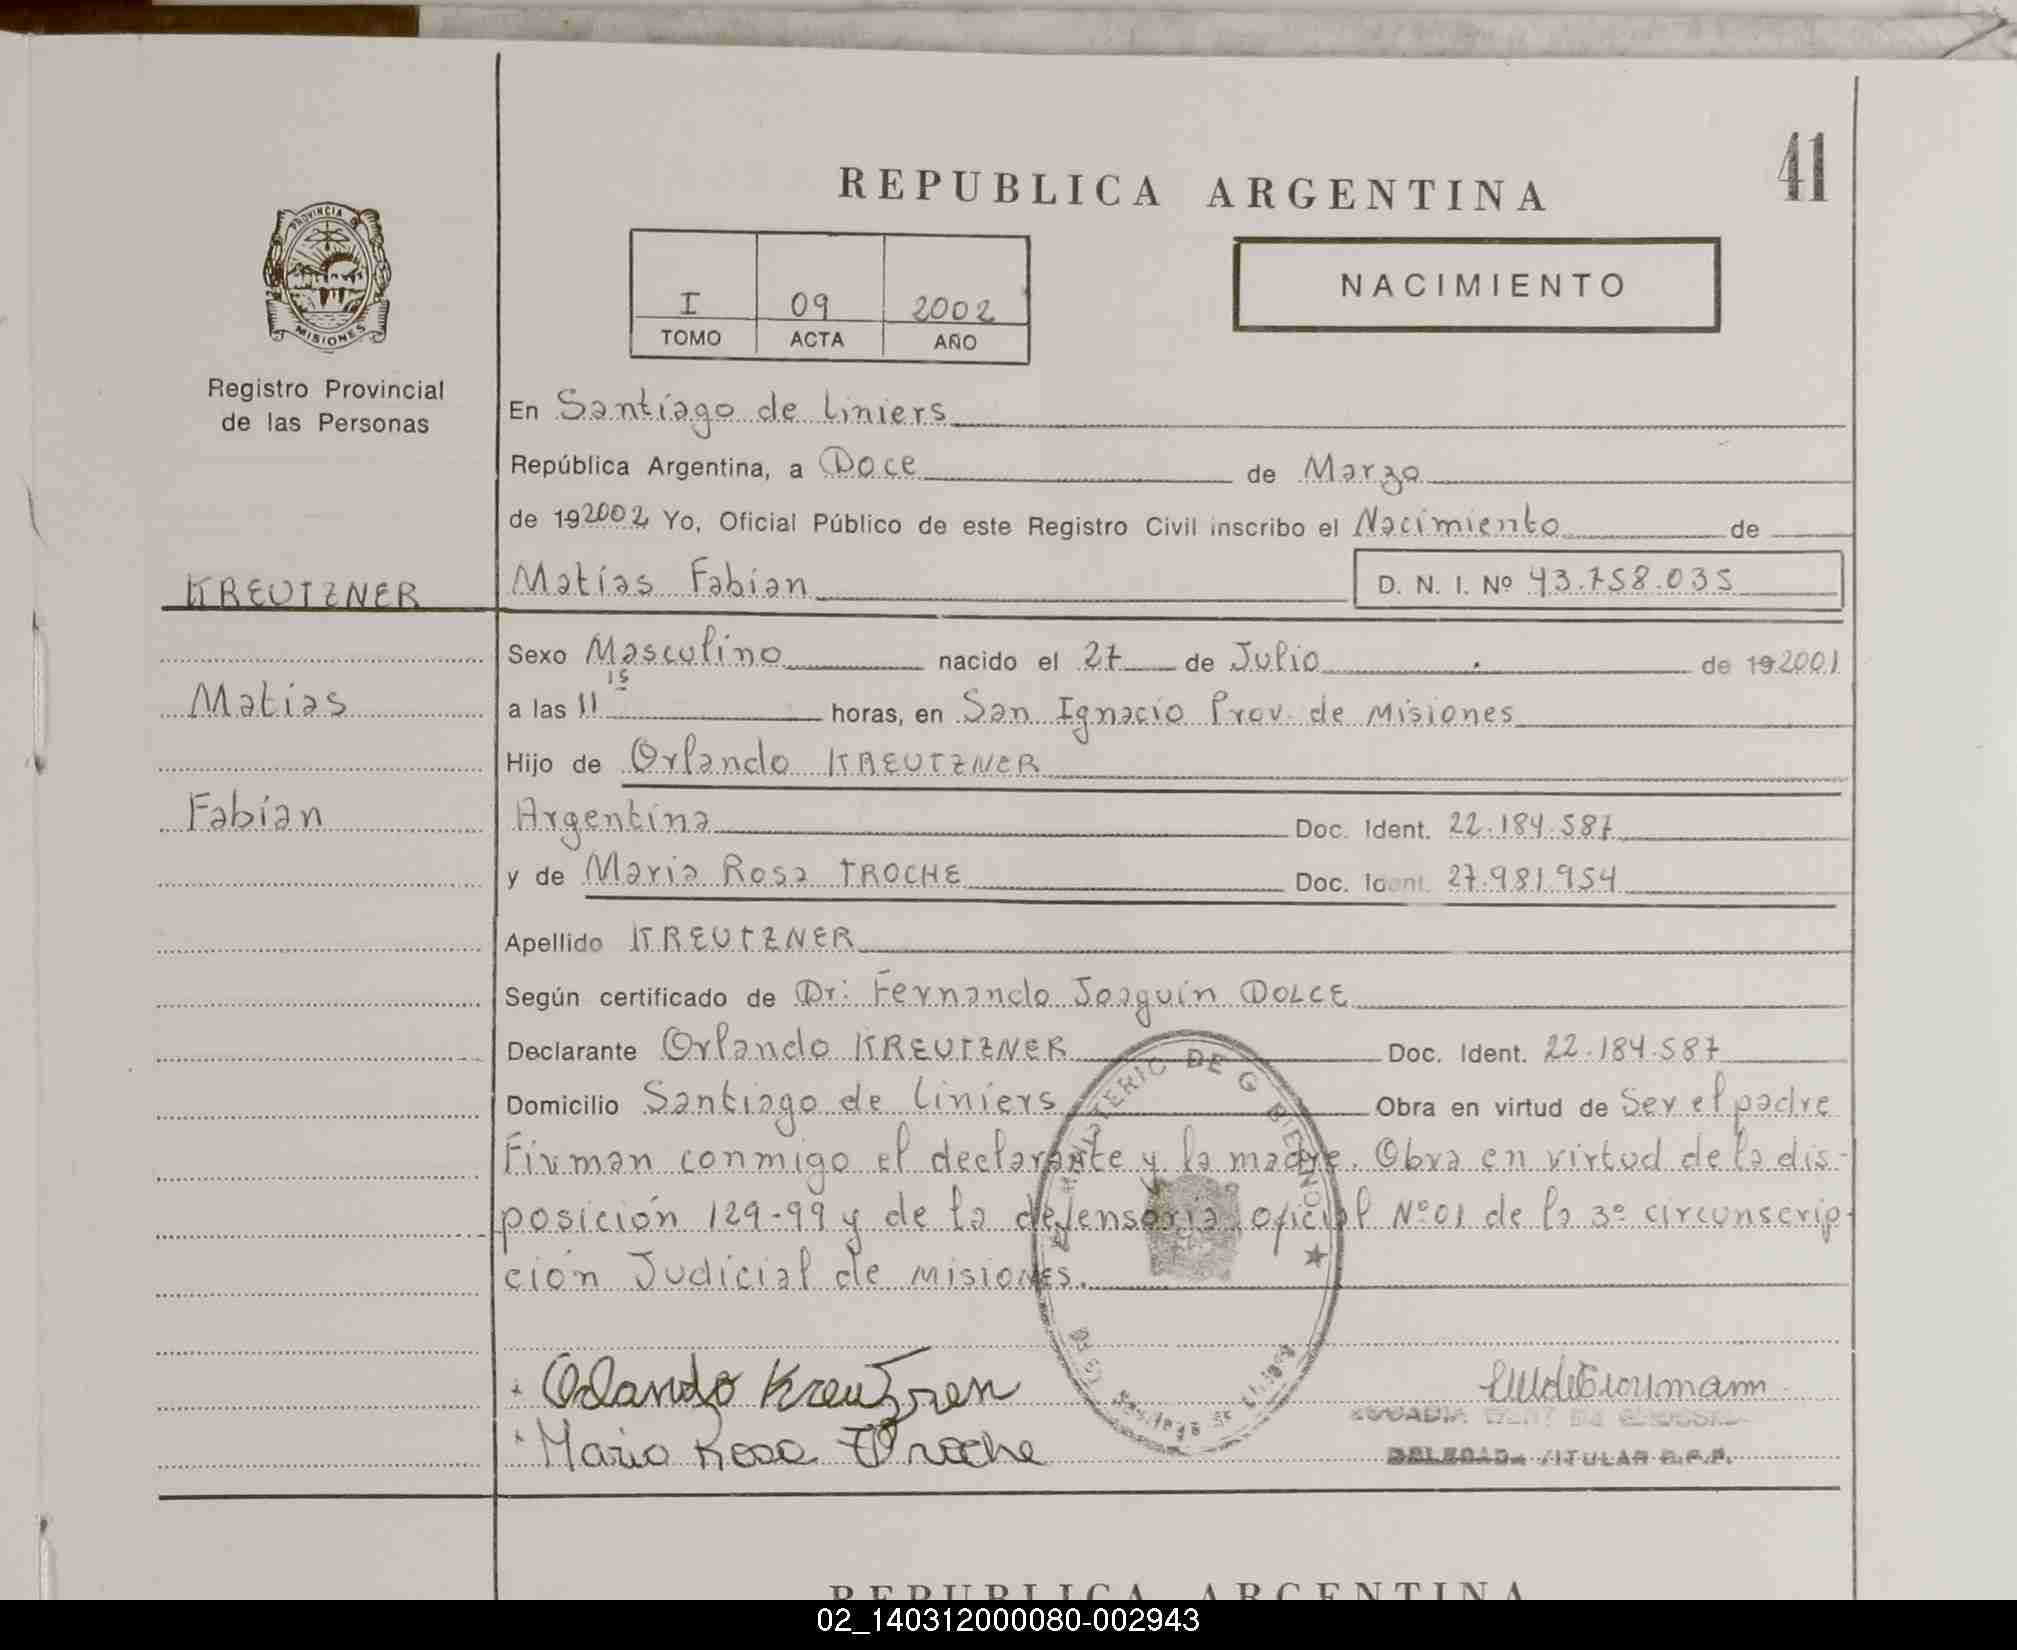 41
REPUBLICA ARGENTINA
PROVINCIA
MISIONES
Registro Provincial
de las Personas
I 09 2002
TOMO ACTA AÑO
NACIMIENTO
En Santiago de Liniers
República Argentina, a Doce de Marzo
de 192002 Yo, Oficial Público de este Registro Civil inscribo el Nacimiento de
KREUTZNER
Matías Fabian D. N. I. Nº 43.758.035
Sexo Masculino nacido el 27 de Julio de 192001
Matías
a las 11 15 horas, en San Ignacio Prov. de Misiones
Hijo de Orlando KREUTZNER
Fabián
Argentina Doc. Ident. 22.184.587
y de Maria Rosa TROCHE Doc. Ident. 27.981.954
Apellido KREUTZNER
Según certificado de Dr: Fernando Joaquín DOLCE
Declarante Orlando KREUTZNER Doc. Ident. 22.184.587
Domicilio Santiago de Liniers Obra en virtud de Ser el padre
Firman conmigo el declarante y la madre. Obra en virtud de la dis-
posición 129-99 y de la defensoría oficial Nº01 de la 3º circunscrip-
ción Judicial de Misiones.
Orlando Kreutznen
Maria Rosa Troche
DELEGADA TITULAR R.P.P.
REPUBLICA ARGENTINA
02_140312000080-002943